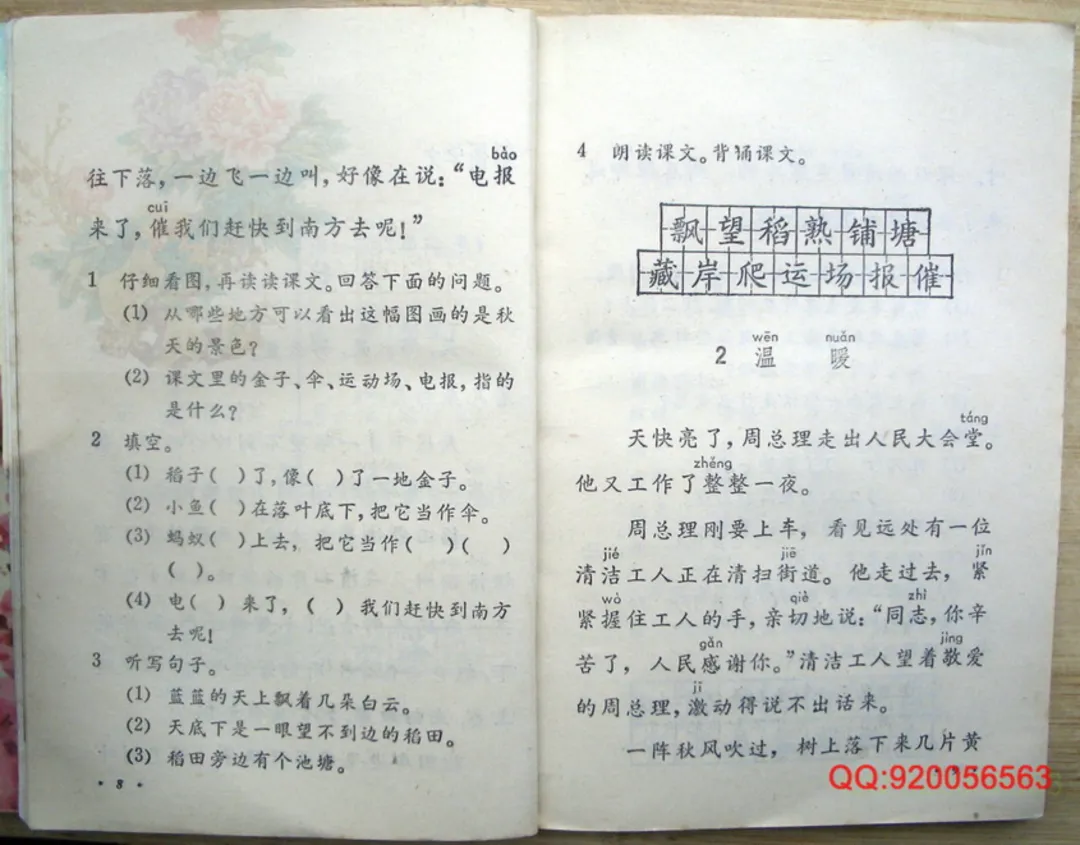 bào
往下落，一边飞一边叫，好像在说：“电报
cuī
来了，催我们赶快到南方去呢！”
1 仔细看图，再读读课文。回答下面的问题。
(1) 从哪些地方可以看出这幅图画的是秋
天的景色？
(2) 课文里的金子、伞、运动场、电报，指的
是什么？
2 填空。
(1) 稻子( )了，像( )了一地金子。
(2) 小鱼( )在落叶底下，把它当作伞。
(3) 蚂蚁( )上去，把它当作( )( )
( )。
(4) 电( )来了，( )我们赶快到南方
去呢！
3 听写句子。
(1) 蓝蓝的天上飘着几朵白云。
(2) 天底下是一眼望不到边的稻田。
(3) 稻田旁边有个池塘。
· 8 ·
4 朗读课文。背诵课文。
飘望稻熟铺塘
藏岸爬运场报催
wēn nuǎn
2 温暖
táng
天快亮了，周总理走出人民大会堂。
zhěng
他又工作了整整一夜。
周总理刚要上车，看见远处有一位
jié jiē jǐn
清洁工人正在清扫街道。他走过去，紧
wò qiè zhì
紧握住工人的手，亲切地说：“同志，你辛
gǎn jìng
苦了，人民感谢你。”清洁工人望着敬爱
jī
的周总理，激动得说不出话来。
一阵秋风吹过，树上落下来几片黄
QQ:920056563